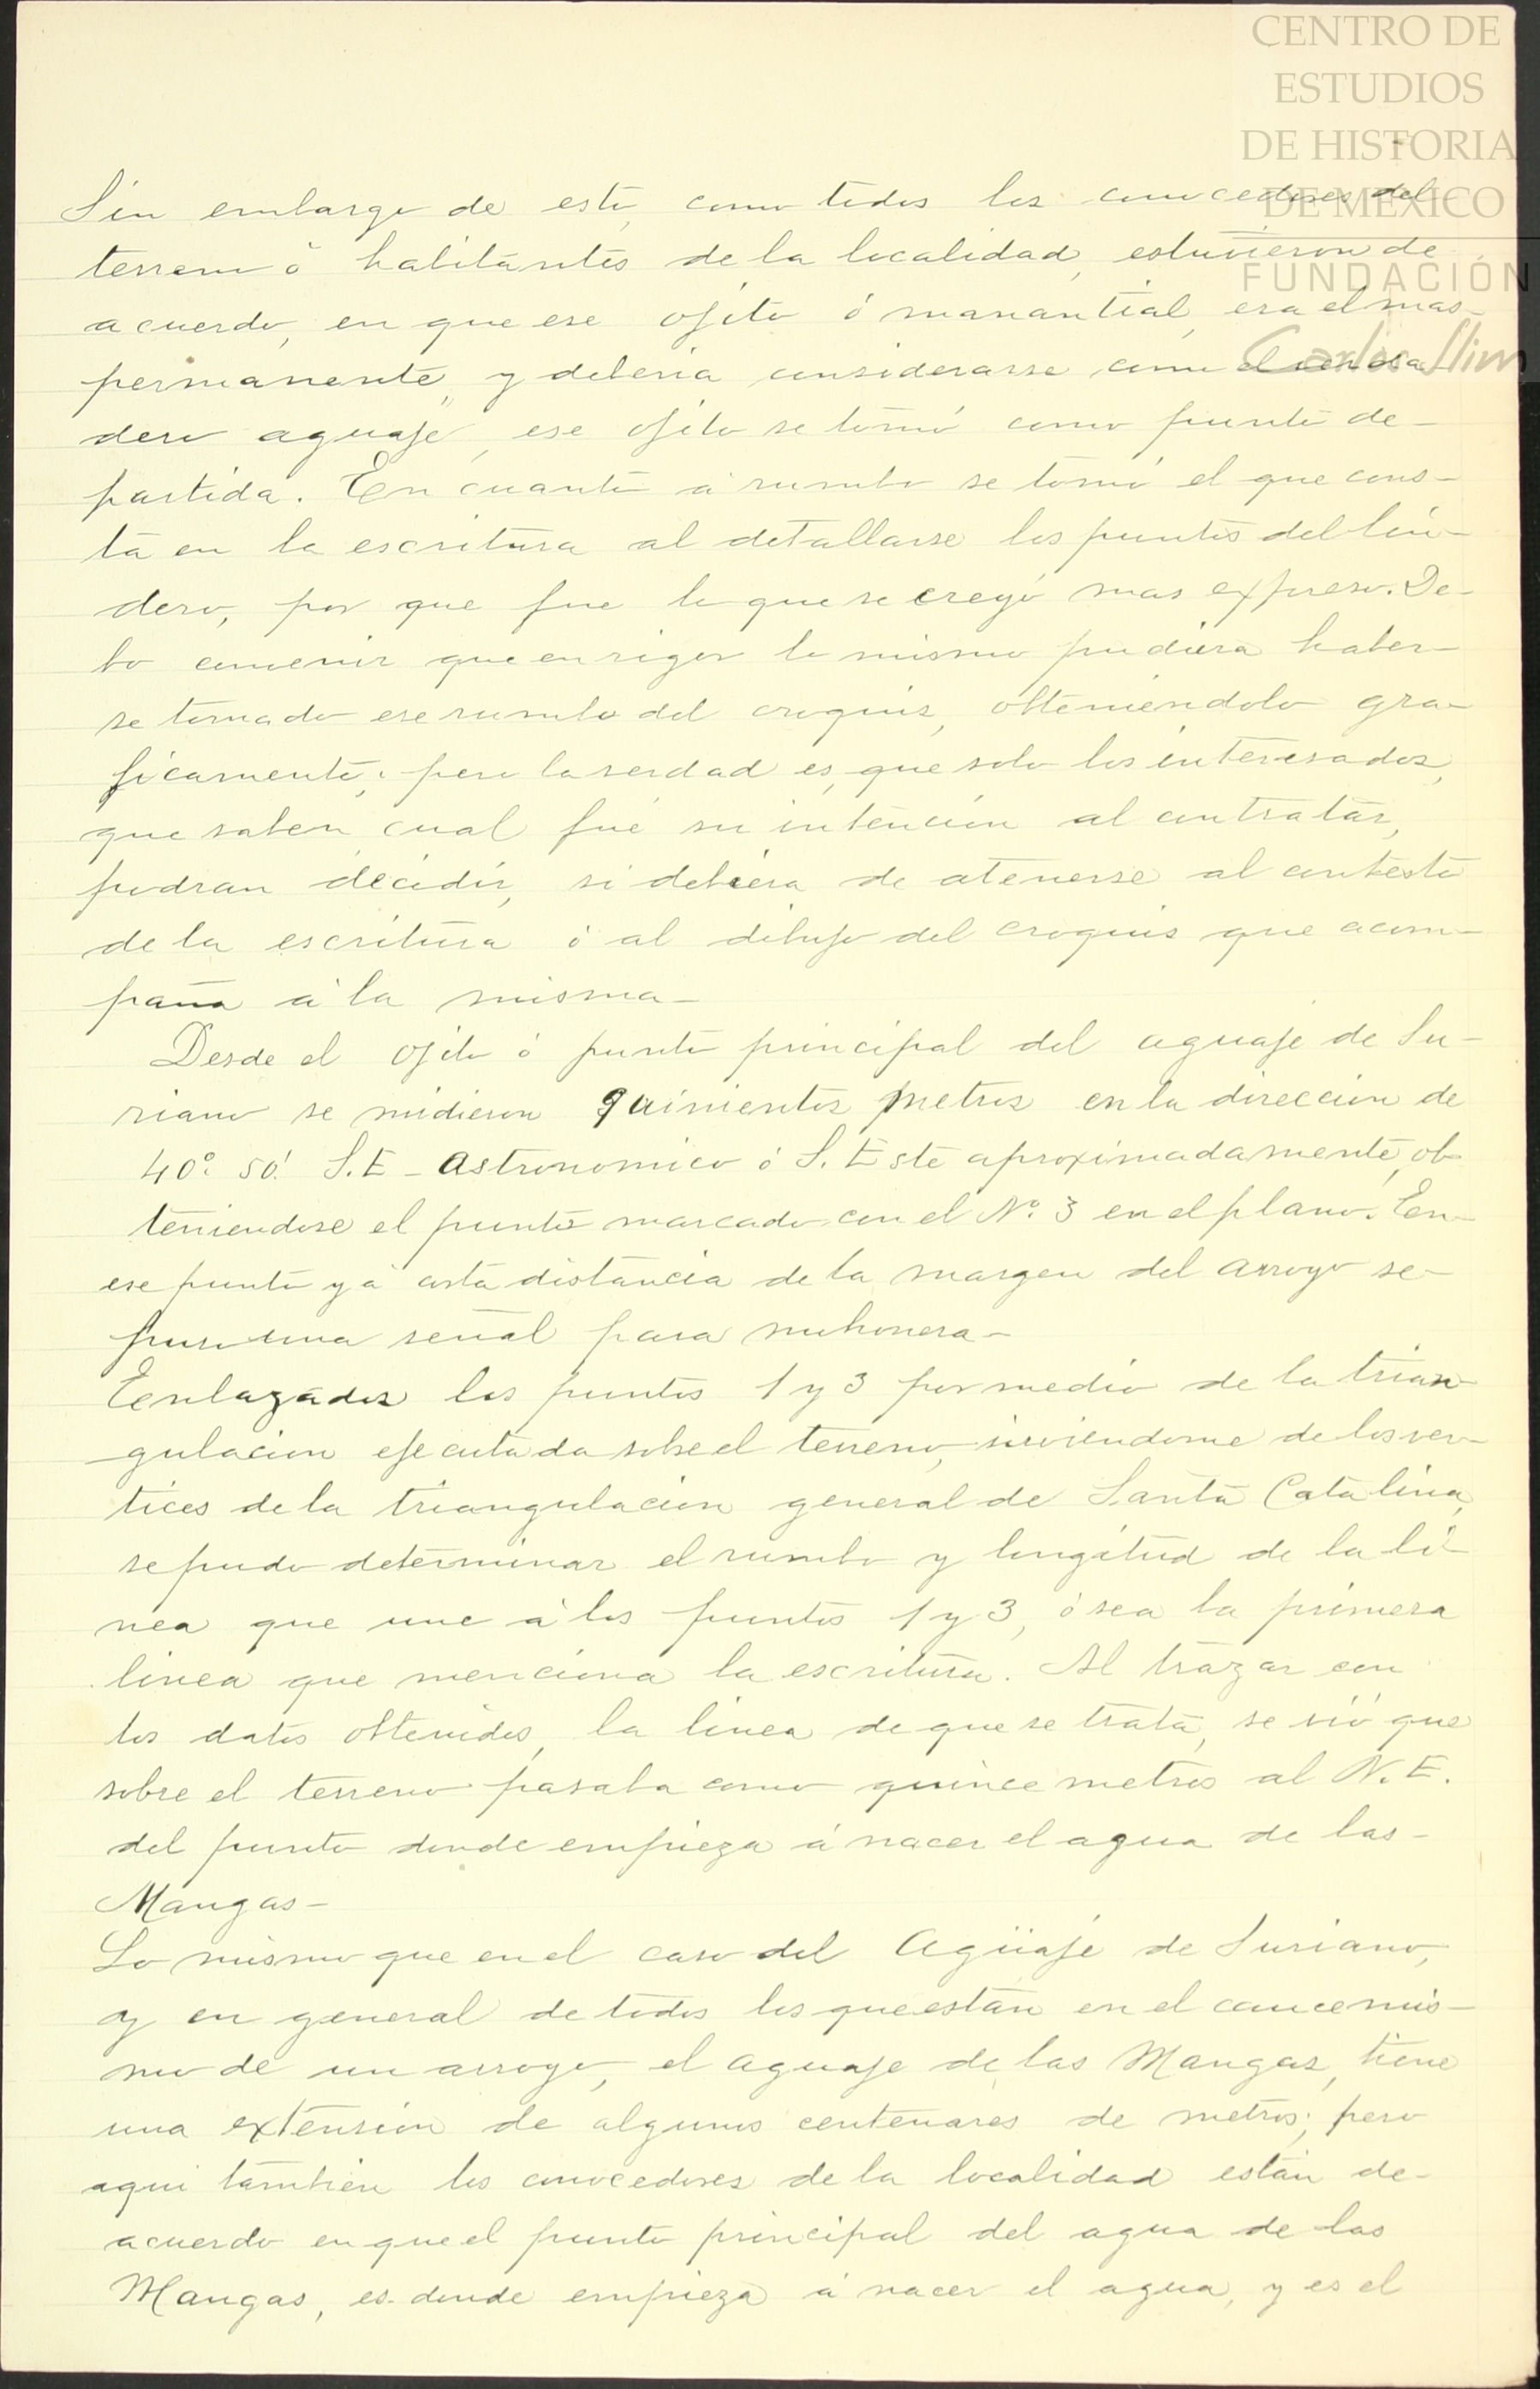 CENTRO DE
ESTUDIOS
DE HISTORIA
DE MÉXICO
FUNDACIÓN
Carlos Slim
Sin embargo de esto, como todos los conocedores del
terreno ó habitantes de la localidad, estuvieron de
acuerdo, en que ese ojito ó manantial, era el mas
permanente, y deberia considerarse como el verda-
dero aguaje, ese ojito se tomó como punto de-
partida. En cuanto á rumbo se tomó el que cons-
ta en la escritura al detallarse los puntos del lin-
dero, por que fue lo que se creyó mas expreso. De-
bo convenir que en rigor lo mismo pudiera haber-
se tomado ese rumbo del croquis, obteniendolo gra-
ficamente; pero la verdad es, que solo los interesados,
que saben cual fué su intencion al contratar,
podran decidir, si debiera de atenerse al contesto
de la escritura ó al dibujo del croquis que acom-
paña á la misma-
Desde el ojito ó punto principal del aguaje de Su-
riano se midieron quinientos metros en la direccion de
40º 50' S.E - Astronomico ó S. Este aproximadamente, ob-
teniendose el punto marcado con el Nº 3 en el plano. En-
ese punto y á corta distancia de la margen del arroyo se-
puso una señal para mohonera-
Enlazados los puntos 1 y 3 por medio de la trian-
gulacion ejecutada sobre el terreno, sirviendome de los ver-
tices de la triangulacion general de Santa Catalina,
se pudo determinar el rumbo y longitud de la li-
nea que une á los puntos 1 y 3, ó sea la primera
linea que menciona la escritura. Al trazar con
los datos obtenidos, la linea de que se trata, se vió que
sobre el terreno pasaba como quince metros al N. E.
del punto donde empieza á nacer el agua de las-
Mangas-
Lo mismo que en el caso del Agüaje de Suriano,
y en general de todos los que están en el cauce mis-
mo de un arroyo, el aguaje de las Mangas, tiene
una extension de algunos centenares de metros; pero
aqui tambien los conocedores de la localidad están de-
acuerdo en que el punto principal del agua de las
Mangas, es donde empieza á nacer el agua, y es el